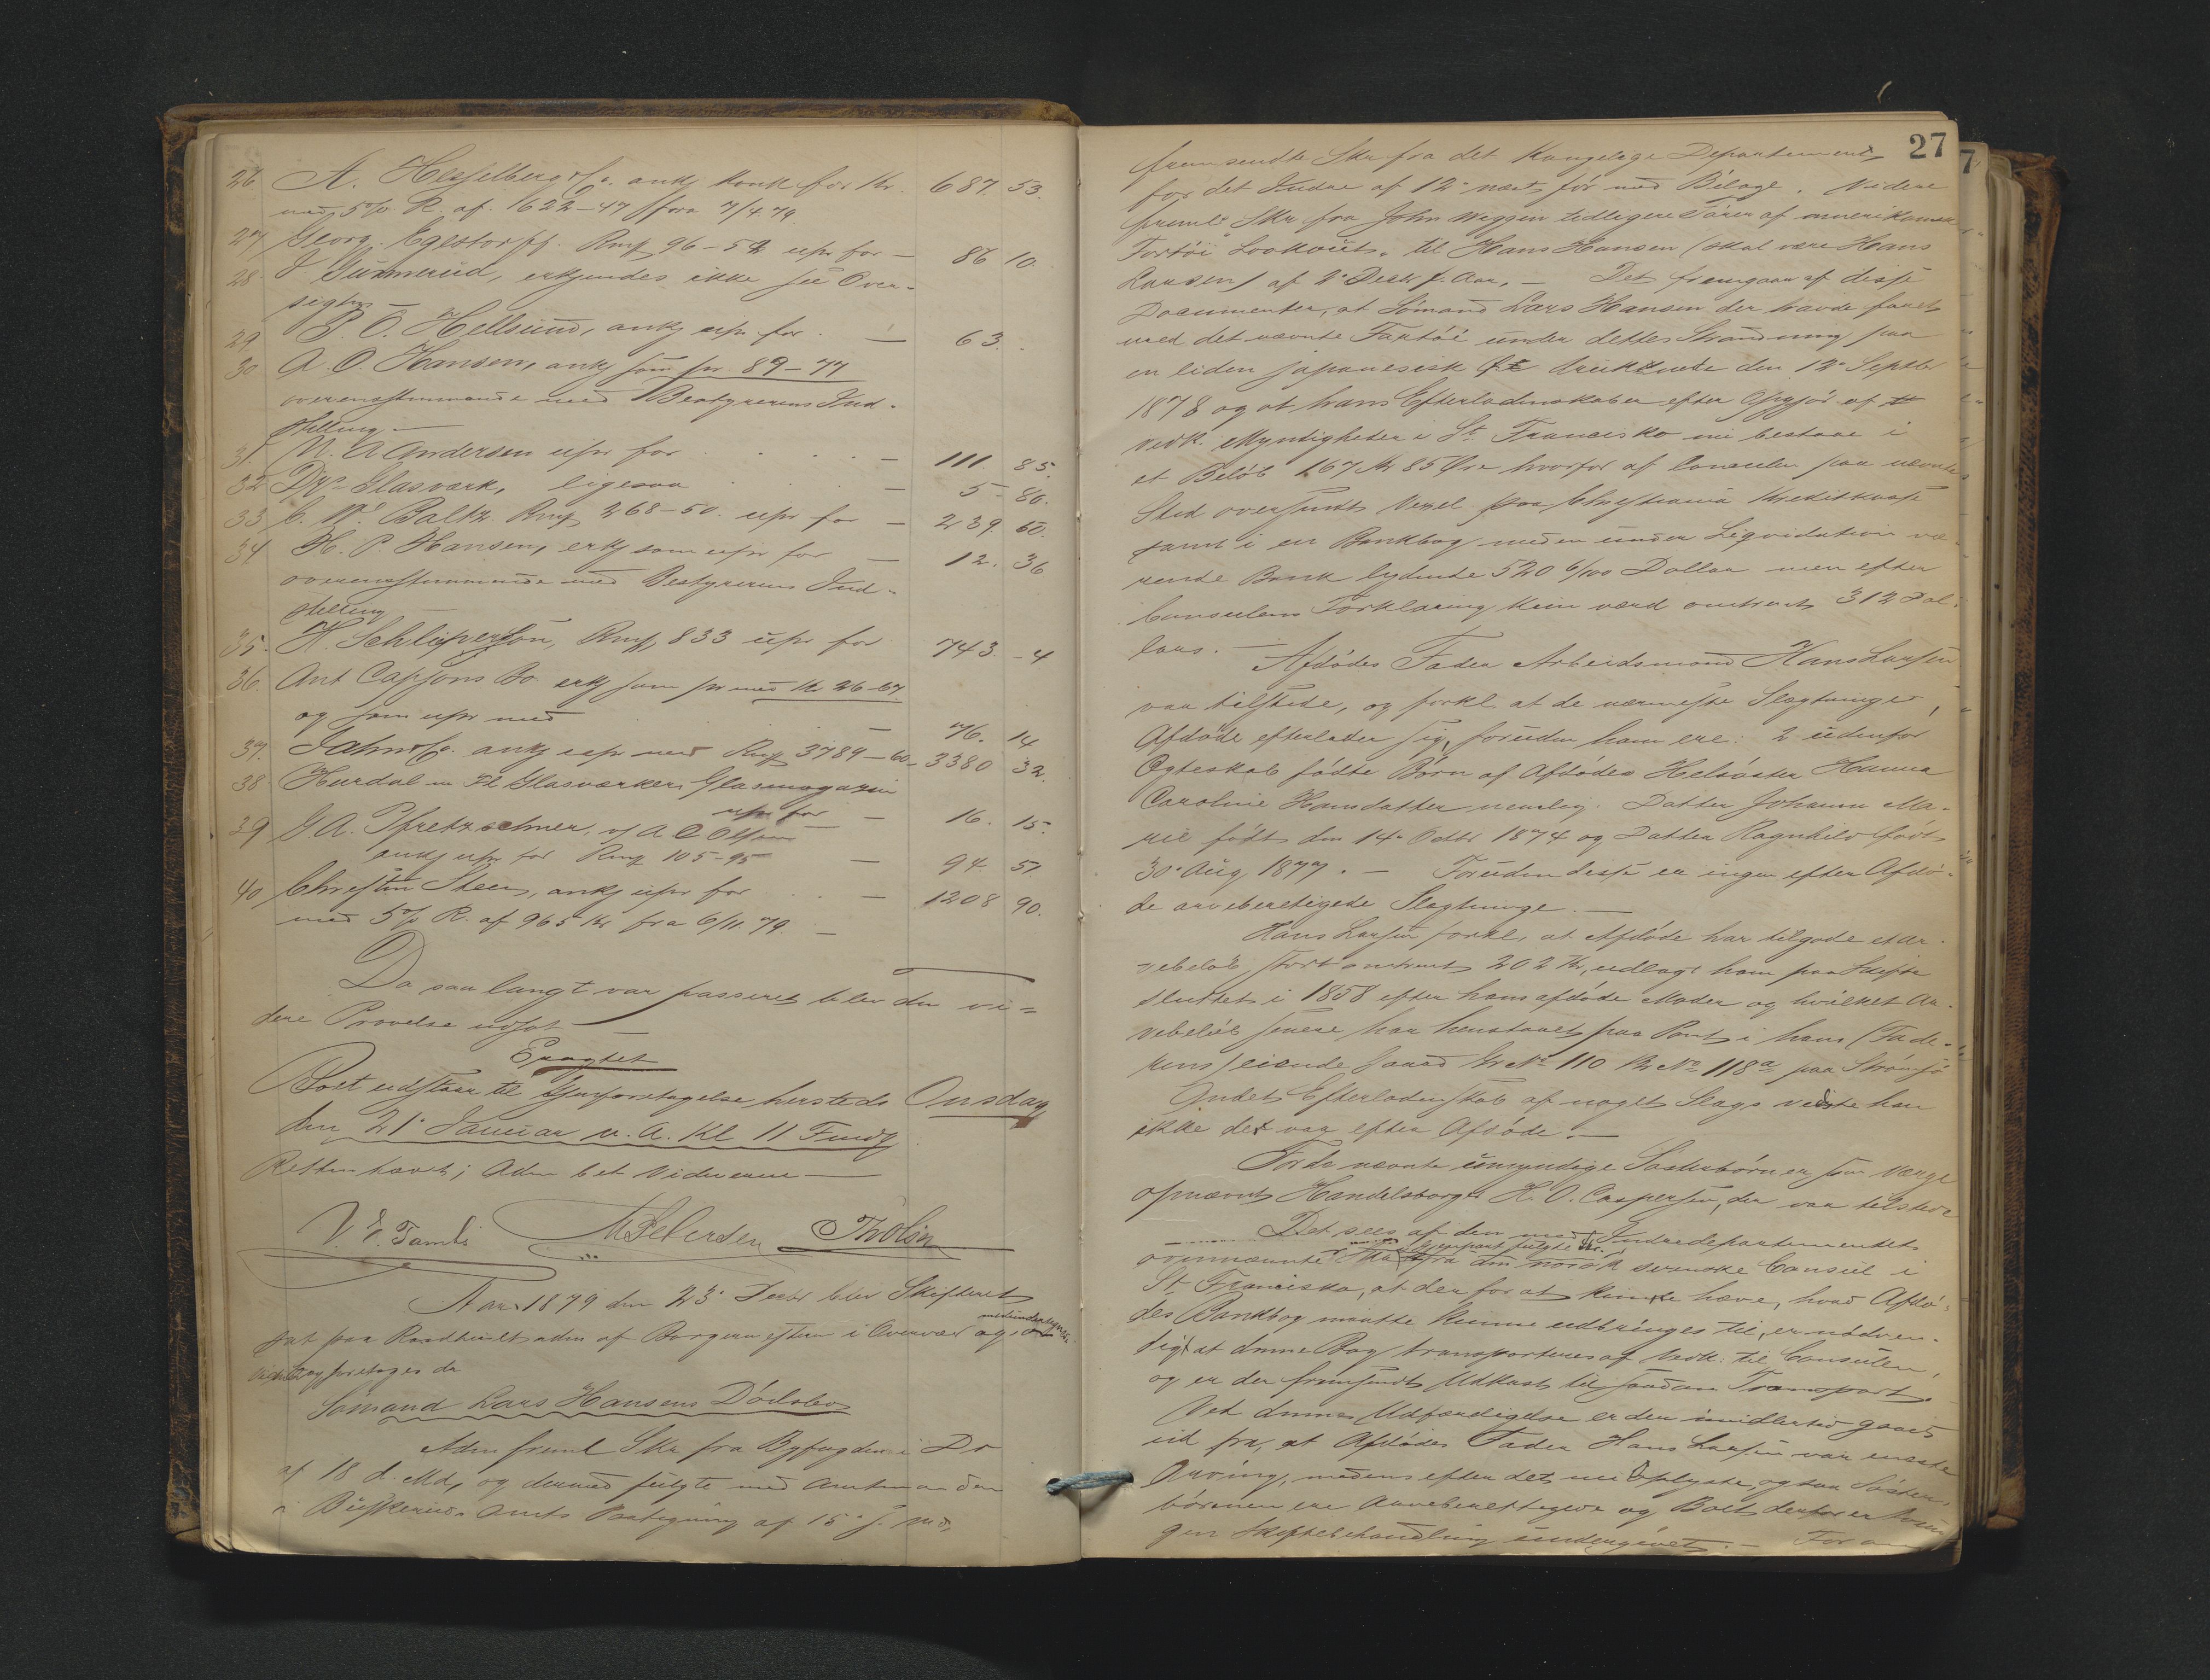 26 A. Hesselberg & Co. ankj konk for Kr. 687. 53.
med 5% R. af 1622-47 fra 7/4.79.
27 Georg. Egestorff. Rmk 96-52 upr for - 86 10.
28 J Gunnerud, erkjendes ikke see Over-
sigten
29 P. O. Hellsund, ankj upr for - 63. -
30 A. O. Hansen, ankj som pr 89-77
overensstemmende med Bestyrerens Ind-
stilling. -
31 N. A Andersen upr for - 111. 85.
32 Glasværk, ligesaa - 5- 80.
33 C. W. Baltz. Rmk 268-50. upr for - 239. 60.
34 H. P. Hansen, erkj som upr for - 12. 36
overensstemmende med Bestyrerens Ind-
stilling
35. H. Schlüper Rmk 833 upr for 743. -4
36. Ant Capjons Bo erkj som pr med Kr 26-67
og som upr med - 76. 14
37. Jahn & Co. ankj upr med Rmk 3789-60- 3380 32.
38- Hurdal m Fl Glasværkers Glasmagasin
upr for - 16. 15.
39 G A. Pfretzschner, v/ A C Olsen
ankj upr for Rmk 105-95 - 94 51
40 Christian Steen, ankj upr for - 1208 90.
med 5% R. af 965 Kr fra 6/11.79. -
Da saa langt var passeret blev den vi-
dere Prøvelse udsat -
Eragtet
Boet udstaar til Gjenforetagelse hersteds Onsdag
den 21. Januar n. A. Kl 11 Fmdg
Retten hævet; Adm bet Vidnerne -
M Pedersen Tholin
Aar 1879 den 23. Decbr blev Skifteret
sat paa Raadhuset adm af Borgermesteren i Overvær af medundertegnede
Vidner og foretoges da
Sømand Lars Hansens Dødsbo
Adm freml Skr fra Byfogden i Dr
af 18 d. Md, og dermed fulgte med Amtmanden
i Buskeruds Amts Paategning af 15. s. Md,
27
fremsendte Skr fra det Kongelige Departement
for det Indre af 12. næst før med Bilage. Videre
freml Skr fra John Wiggin tidligere Fører af amerikansk
Fartøi Lookout. til Hans Hansen (skal være Hans
Larsen) af Decbr f. Aar. - Det fremgaar af disse
Documenter, at Sømand Lars Hansen der havde faret
med det nævnte Fartøi under dettes Stranding paa
en liden japanesisk druknede den 12. Septbr
1878 og at hans Efterladenskaber efter Opgjør af
vedk. Myndigheder i St. Francisko nu bestaar i
et Beløb 167 Kr 85 Øre hvorfor af Consulen paa nævnte
Sted oversendt Vexel paa Christiania Kreditkasse
samt i en Bankbog meden under Liqvidation væ-
rende Bank lydende 520 6/100 Dollar men efter
Consulens Forklaring kun værd omtrent 312 Dol-
lars. -
Afdødes Fader Arbeidsmand Hans Larsen
var tilstede, og forkl at de nærmeste Slægtninge,
Afdøde efterlader sig, foruden ham ere: 2 udenfor
Egteskab fødte Børn af Afdødes Helsøster Hanna
Caroline Hansdatter nemlig: Datter Johanne Ma-
rie født den 14. Octbr 1874 og Datter Ragnhild født
30. Aug 1877. - Foruden disse er ingen efter Afdø-
de arveberettigede Slægtninge. -
Hans Larsen forkl, at Afdøde har tilgode et Ar-
vebeløb stort omtrent 202 Kr, udlagt ham paa Skifte
sluttet i 1858 efter hans afdøde Moder og hvilket Ar-
vebeløb senere har henstaaet paa Pant i hans (Fade-
rens) eiende Gaard Gr No 110 Br No 118a paa Strømsø
Andet Efterladenskab af noget Slags vidste han
ikke det var efter Afdøde. -
For de nævnte umyndige Søsterbørn er som Værge
opnævnt Handelsborger H. O. Caspersen, der var tilstede
Det sees af den med Indredepartementets
ovennævnte Skr Gjenpart fulgte Skr. fra den norsk svenske Consul i
St. Francisko, at der for at kunne hæve, hvad Afdø-
des Bankbog maatte kunne udbringes til, er nødven-
digt at denne Bog transporteres af Vedk. til Consulen,
og er der fremsendt Udkast til saadan Transport.
Ved dennes Udfærdigelse er den imidlertid gaaet
ud fra, at Afdødes Fader Hans Larsen var eneste
Arving, medens efter det nu Oplyste, ogsaa Søster-
børnene ere Arveberettigede og Boet derfor er
gen Skiftebehandling undergivet. - For